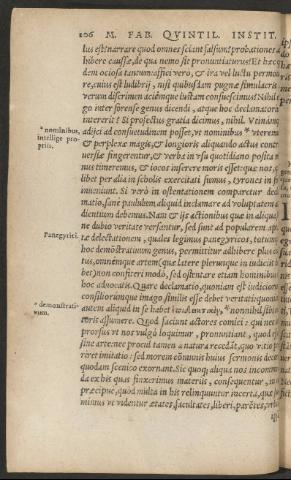 106 M. FAB. QVINTIL. INSTIT.
lus est: narrare quod omnes sciant salsum: probationes a
hibere caussæ, de qua nemo sit pronuntiaturus? Et hæc
dem ociosa tantum: affici verò, & ira vel luctu permo
re, cuius est ludibrij, nisi quibusdam pugnæ simulacris
verum discrimen aciémque iustam consuescimus? Nihil
go inter forense genus dicendi, atque hoc declamatori
intererit? Si profectus gratia dicimus, nihil. Vtinam
adijci ad consuetudinem posset, vt nominibus * vterem
* nominibus,
intellige pro-
priis.
& perplexæ magis, & longioris aliquando actus contr
uersiæ fingerentur, & verba in vsu quotidiano posita
nus timeremus, & iocos inserere moris esset: quæ nos,
libet per alia in scholis exercitati simus, tyrones in
inueniunt. Si verò in ostentationem comparetur decl
matio, sanè paulùm aliquid inclinare ad voluptatem a
dientium debemus. Nam & ijs actionibus quæ in aliqua
ne dubio veritate versantur, sed sunt ad popularem
Panegyrici.
tæ delectationem, quales legimus panegyricos, totum
hoc demōstratiuum genus, permittitur adhibere plus
tus, omnémque artem (quæ latere plerunque in iudiciis
bet) non confiteri modò, sed ostentare etiam hominibus
hoc aduocatis. Quare declamatio, quoniam est iudiciorū
consiliorúmque imago, similis esse debet veritati: quoniā
* demonstrati-
uum.
autem aliquid in se habet *, nonnihil sibi
toris assumere. Quod faciunt actores comici: qui nec
prorsus vt nos vulgò loquimur, pronuntiant, quod
sine arte: nec procul tamen à natura recedūt, quo vitio
reret imitatio: sed morem cōmunis huius sermonis decor
quodam scenico exornant. Sic quoque aliqua nos incomm
da ex his quas finxerimus materiis, consequentur, in
præcipuè, quòd multa in his relinquuntur incerta, quæ
mimus vt videntur, ætates, facultates, liberi, parētes,